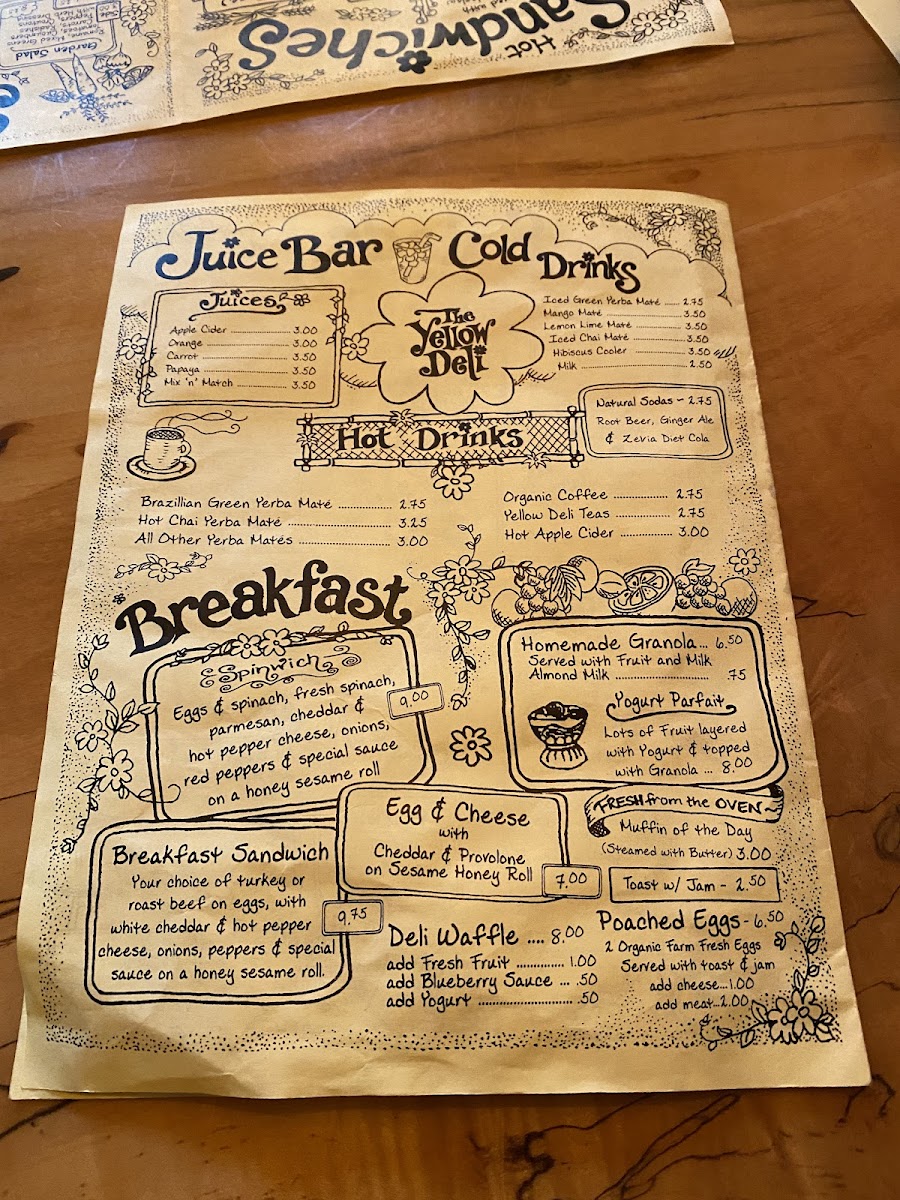 Hot
Sandwiches
Garden Salad
Juice Bar
Cold Drinks
The
Yellow
Deli
Juices
Apple Cider ........ 3.00
Orange ........ 3.00
Carrot ........ 3.50
Papaya ........ 3.50
Mix 'n' Match ........ 3.50
Iced Green Yerba Maté ..... 2.75
Mango Maté ........ 3.50
Lemon Lime Maté ........ 3.50
Iced Chai Maté ........ 3.50
Hibiscus Cooler ........ 3.50
Milk ........ 2.50
Natural Sodas ~ 2.75
Root Beer, Ginger Ale
& Zevia Diet Cola
Hot Drinks
Brazillian Green Yerba Maté ........ 2.75
Hot Chai Yerba Maté ........ 3.25
All Other Yerba Matés ........ 3.00
Organic Coffee ........ 2.75
Yellow Deli Teas ........ 2.75
Hot Apple Cider ........ 3.00
Breakfast
Spinwich
Eggs & spinach, fresh spinach,
parmesan, cheddar &
hot pepper cheese, onions,
red peppers & special sauce
on a honey sesame roll
9.00
Homemade Granola... 6.50
Served with Fruit and Milk
Almond Milk ........ .75
Yogurt Parfait
Lots of Fruit layered
with Yogurt & topped
with Granola ... 8.00
Egg & Cheese
with
Cheddar & Provolone
on Sesame Honey Roll
7.00
FRESH from the OVEN~
Muffin of the Day
(Steamed with Butter) 3.00
Toast w/ Jam - 2.50
Breakfast Sandwich
Your choice of turkey or
roast beef on eggs, with
white cheddar & hot pepper
cheese, onions, peppers & special
sauce on a honey sesame roll.
9.75
Deli Waffle .... 8.00
add Fresh Fruit ........ 1.00
add Blueberry Sauce ... .50
add Yogurt ........ .50
Poached Eggs - 6.50
2 Organic Farm Fresh Eggs
Served with toast & jam
add cheese...1.00
add meat...2.00